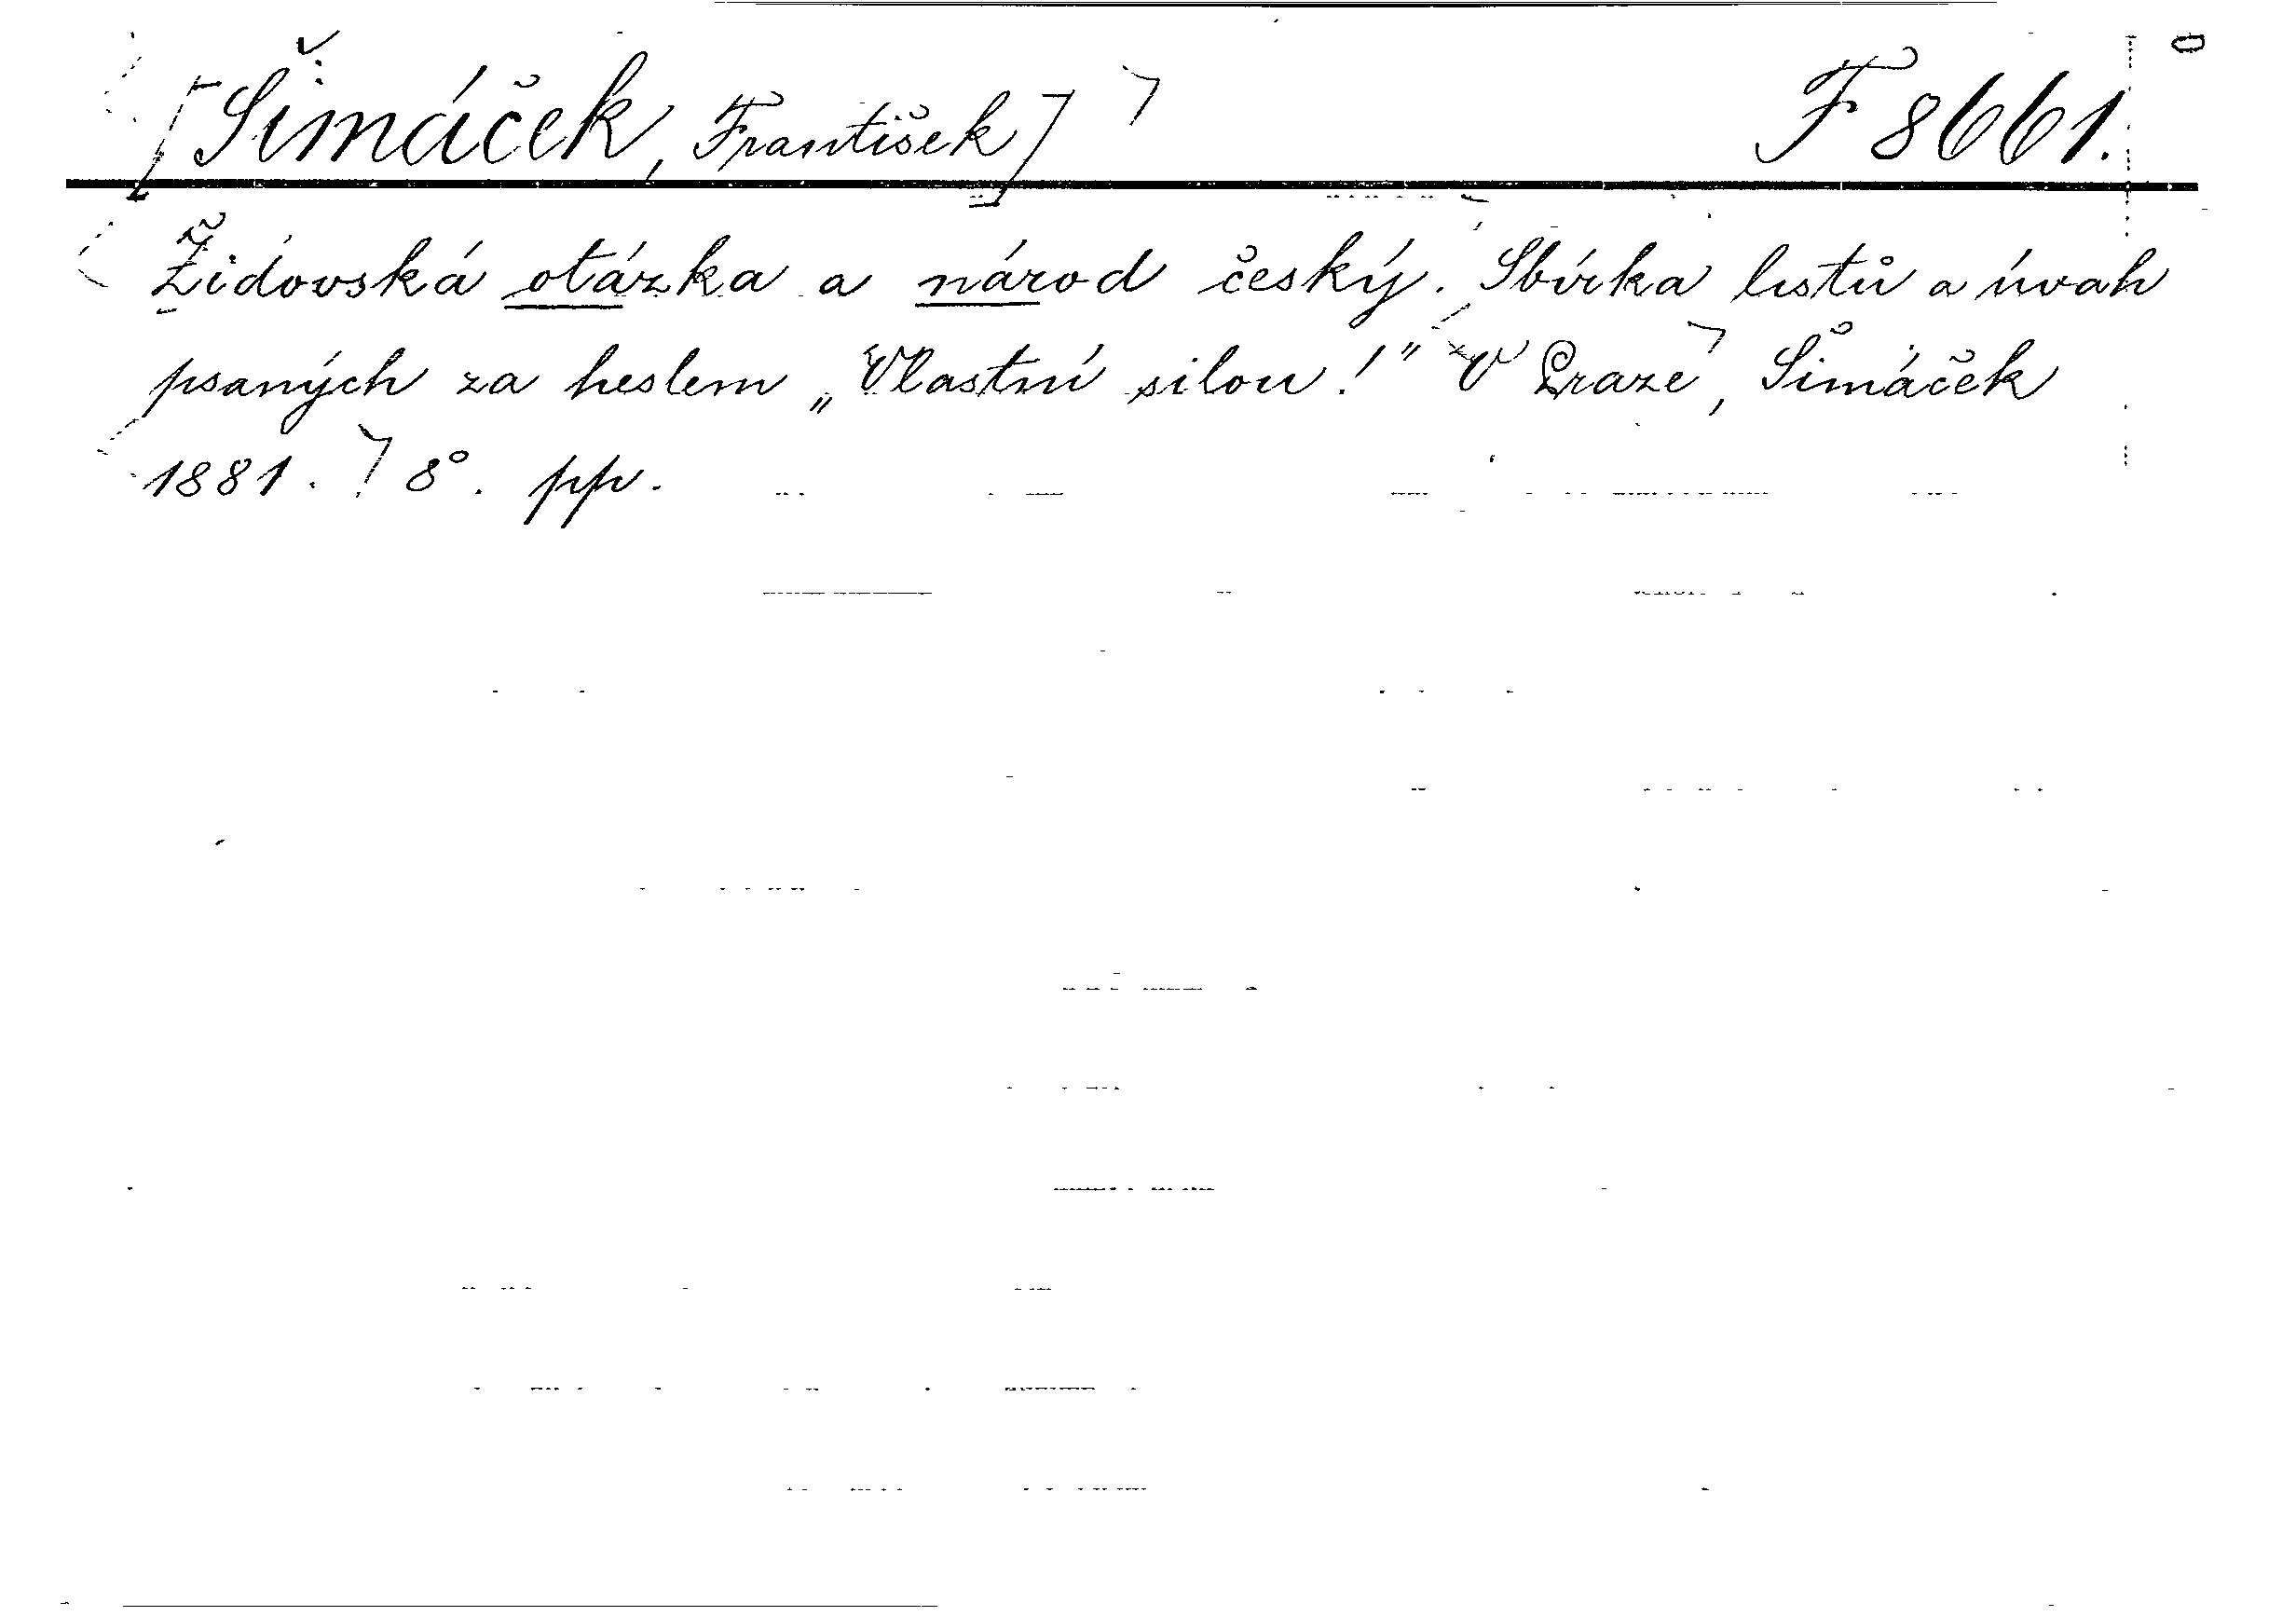 [Šimáček, František] F 8661.
Židovská otázka a národ český. Sbírka listů a úvah
psaných za heslem „Vlastní silou!" V Praze, Šimáček
1881. 8°. pp.